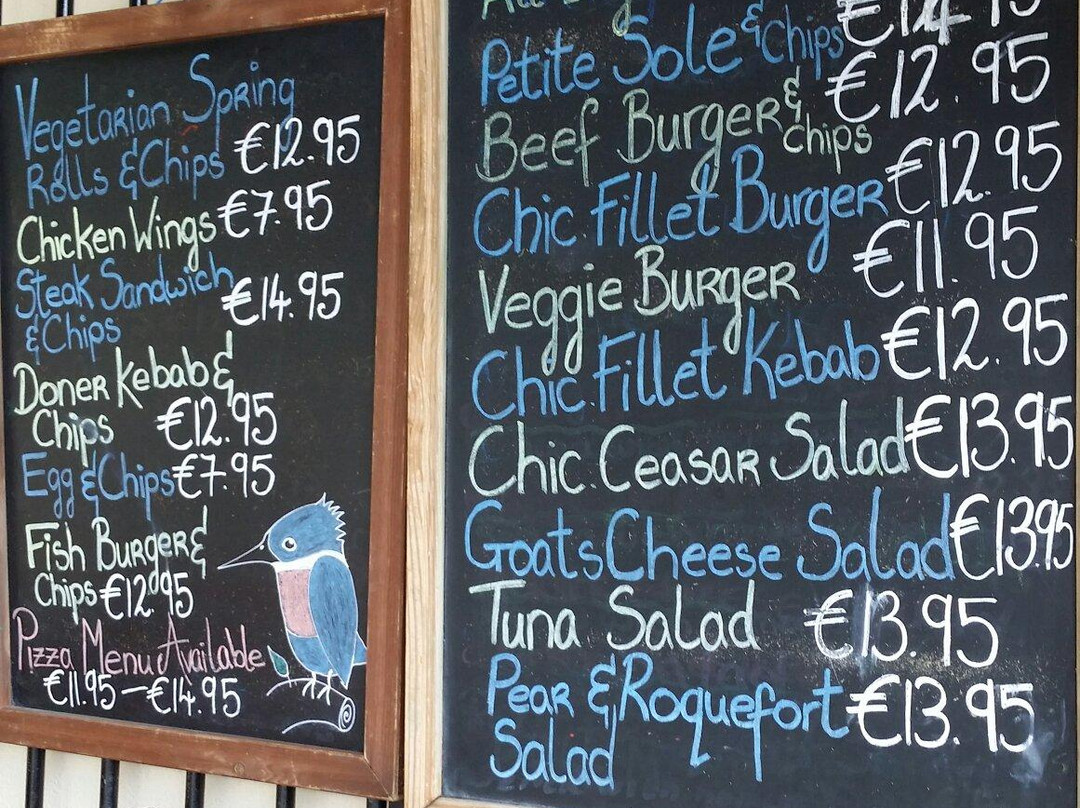 Vegetarian Spring
Rolls & Chips €12.95
Chicken Wings €7.95
Steak Sandwich
& Chips €14.95
Doner Kebab &
Chips €12.95
Egg & Chips €7.95
Fish Burger &
Chips €12.95
Pizza Menu Available
€11.95 – €14.95
Petite Sole & Chips
Beef Burger & chips €12.95
Chic Fillet Burger €12.95
Veggie Burger €11.95
Chic. Fillet Kebab €12.95
Chic. Ceasar Salad €13.95
Goats Cheese Salad €13.95
Tuna Salad €13.95
Pear & Roquefort €13.95
Salad